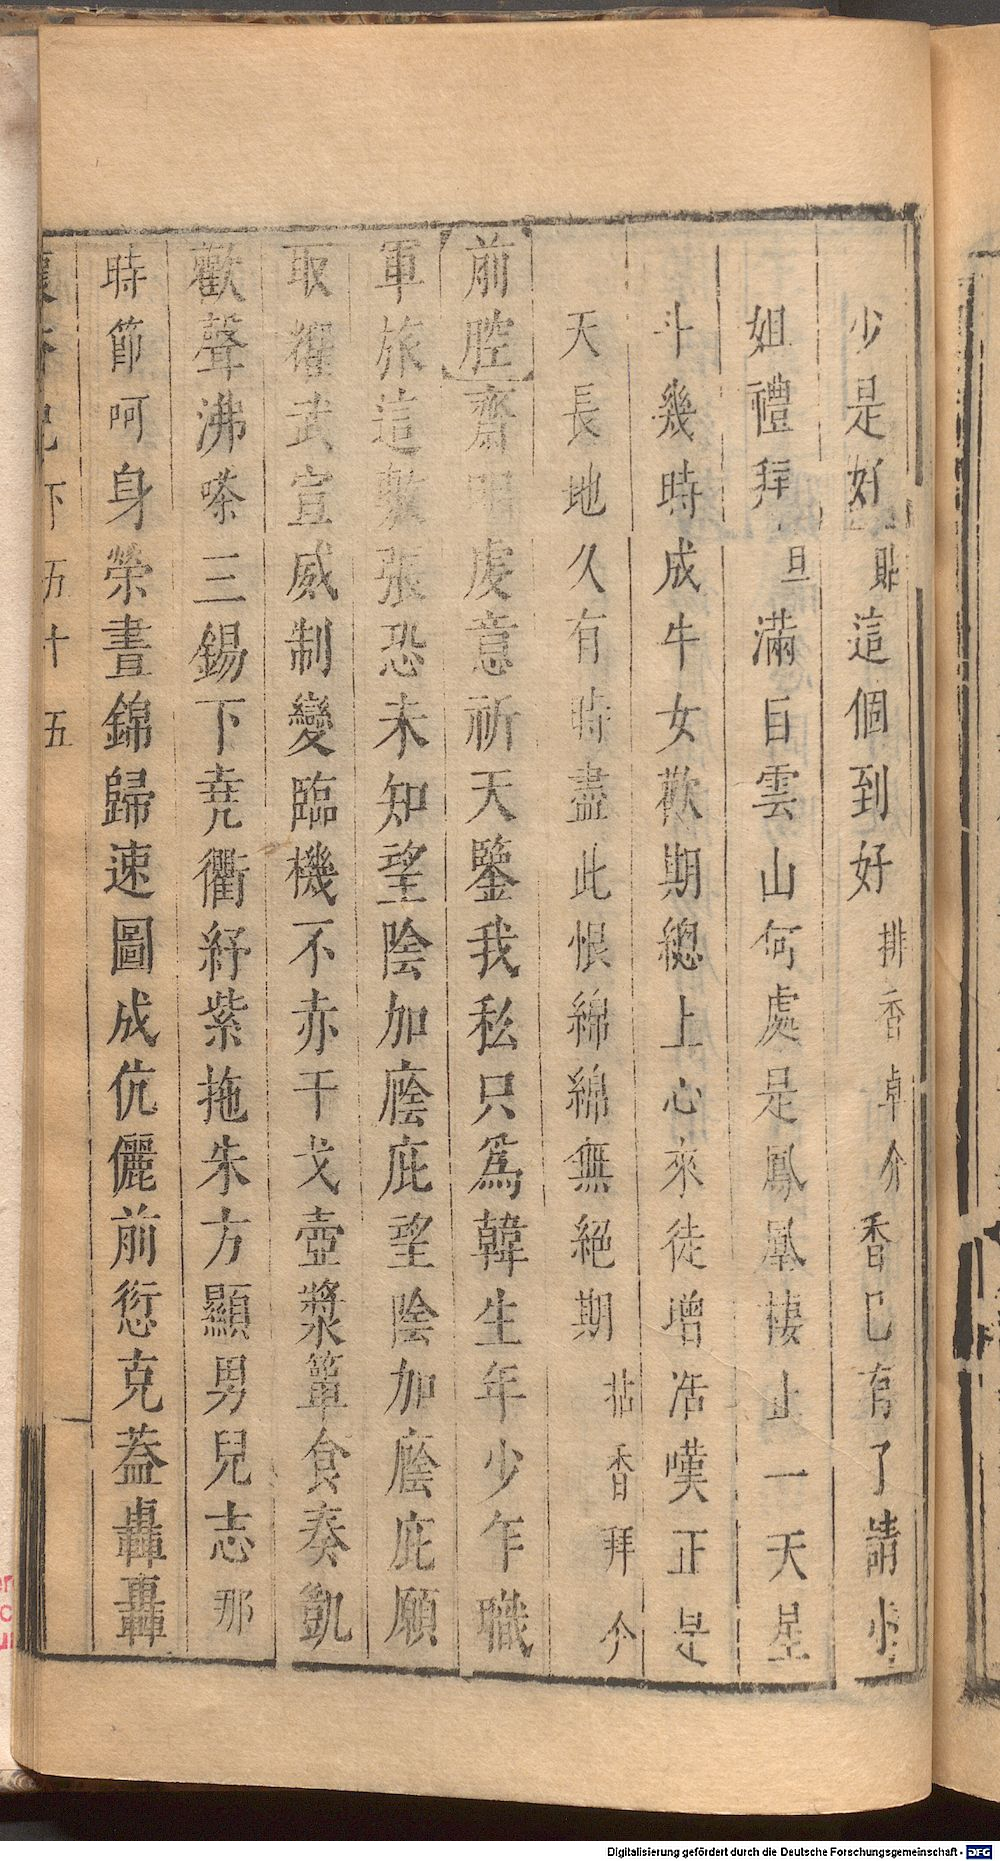 少是好貼這個到好排香卓介香已有了請小
姐禮拜旦滿目雲山何處是鳳凰棲止一天星
斗幾時成牛女歡期總上心來徒增浩嘆正是
天長地久有時盡此恨綿綿無絕期拈香拜介
前腔齋明虔意祈天鑒我私只為韓生年少乍職
軍旅這敷張恐未知望陰加廕庇望陰加廕庇願
取耀武宣威制變臨機不赤干戈壺漿簞食奏凱
歡聲沸嗏三錫下堯衢紆紫拖朱方顯男兒志那
時節呵身榮晝錦歸速圖成伉儷前愆克葢轟轟
下 五十五
Digitalisierung gefördert durch die Deutsche Forschungsgemeinschaft - DFG